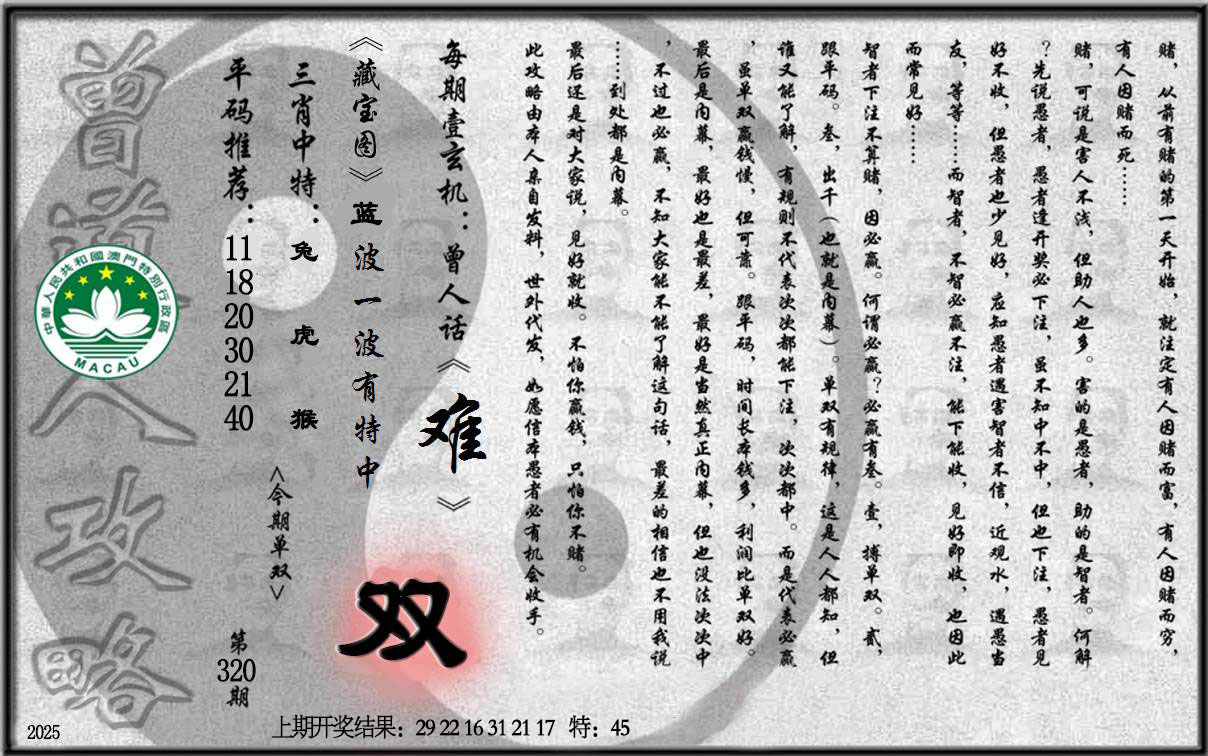 赌，从前有赌的第一天开始，就注定有人因赌而富，有人因赌而穷，
有人因赌而死……
赌，可说是害人不浅，但助人也多。害的是愚者，助的是智者。何解
？先说愚者，愚者逢开奖必下注，虽不知中不中，但也下注，愚者见
好不收，但愚者也少见好，应知愚者遇害智者不信，近观水，遇愚当
友，等等……而智者，不智必赢不注，能下能收，见好即收，也因此
而常见好……
智者下注不算赌，因必赢。何谓必赢？必赢有叁。壹，搏单双。贰，
跟平码。叁，出千（也就是内幕）。单双有规律，这是人人都知，但
谁又能了解，有规则不代表次次都能下注，次次都中。而是代表必赢
，虽单双赢钱慢，但可靠。跟平码，时间长本钱多，利润比单双好。
最后是内幕，最好也是最差，最好是当然真正内幕，但也没法次次中
，不过也必赢，不知大家能不能了解这句话，最差的相信也不用我说
……到处都是内幕。
最后还是对大家说，见好就收。不怕你赢钱，只怕你不赌。
此攻略由本人亲自发料，世外代发，如愿信本愚者必有机会收手。
每期壹玄机：曾人话《难》
《藏宝图》蓝波一波有特中
双
三肖中特：兔虎猴
<今期单双>
平码推荐：
11
18
20
30
21
40
第
320
期
曾道人攻略
中華人民共和國澳門特別行政區
MACAU
2025
上期开奖结果：29 22 16 31 21 17 特：45